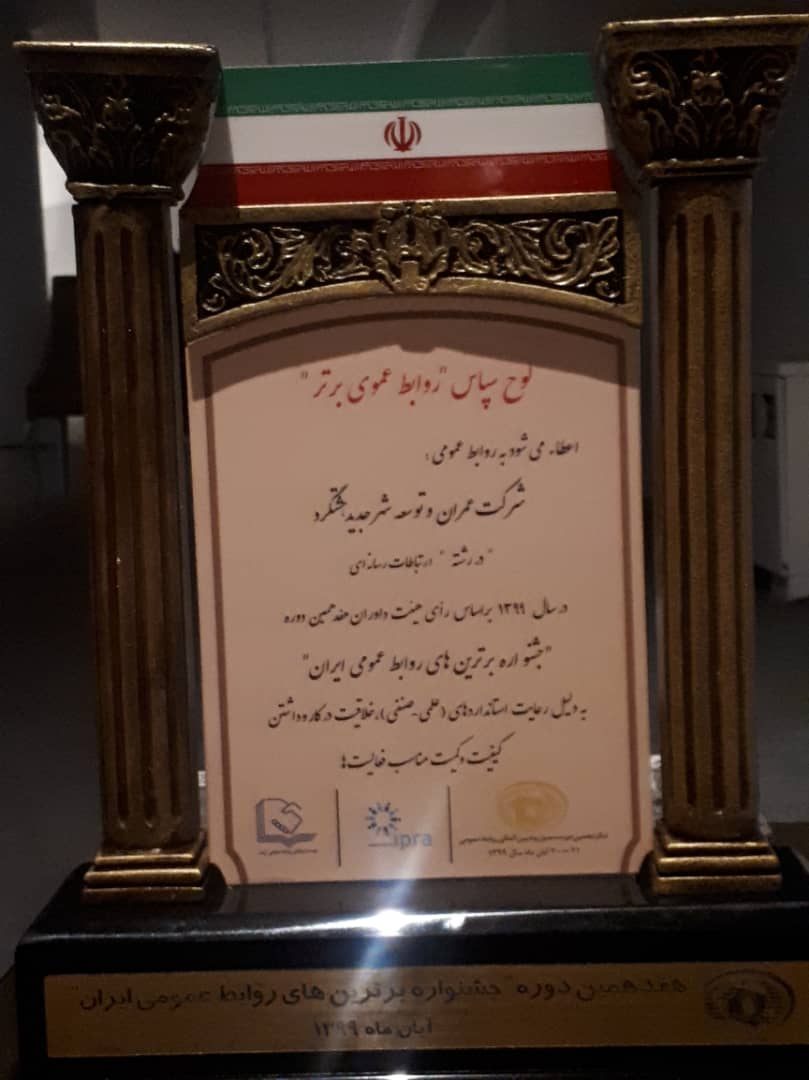 لوح سپاس "روابط عمومی برتر"
اعطاء می شود به روابط عمومی :
شرکت عمران و توسعه شهر جدید هشتگرد
"در رشته " ارتباطات رسانه ای
در سال ۱۳۹۹ براساس رأی هیئت داوران هفدهمین دوره
"جشنواره برترین های روابط عمومی ایران"
به دلیل رعایت استانداردهای (علمی-صنفی)، خلاقیت در کار و داشتن
کیفیت و کمیت مناسب فعالیت ها
ipra
آبان ماه سال ۱۳۹۹
هفدهمین دوره "جشنواره برترین های روابط عمومی ایران"
آبان ماه ۱۳۹۹